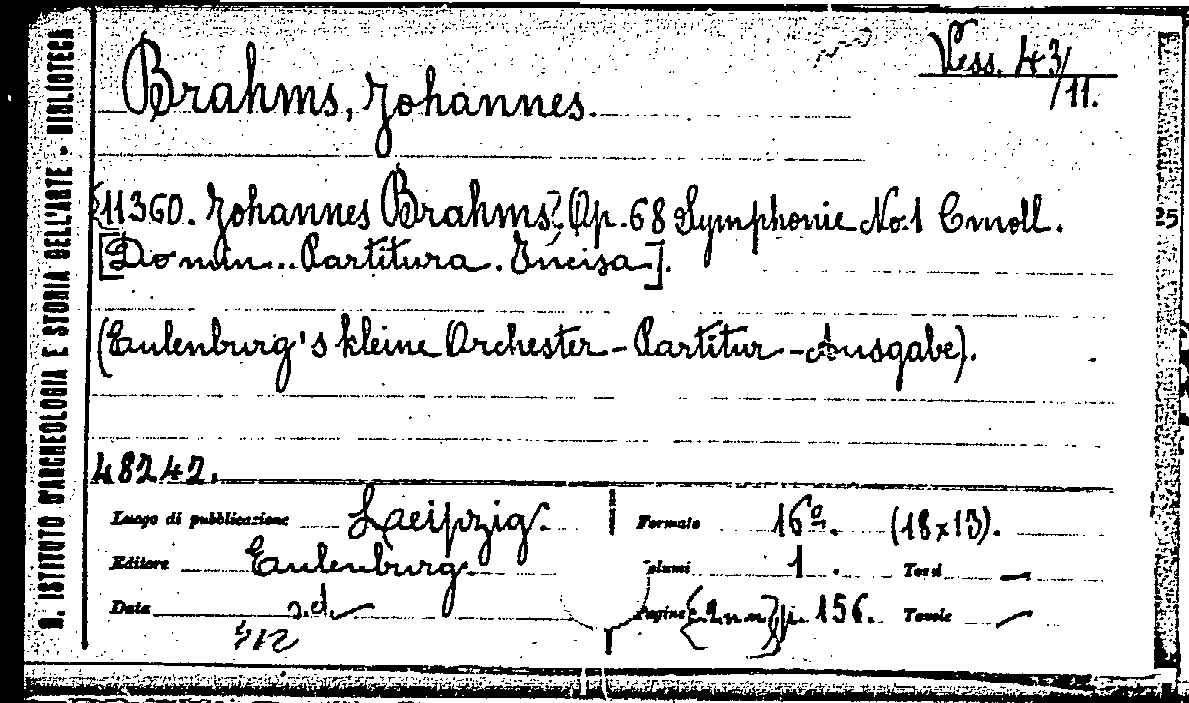 R. ISTITUTO D'ARCHEOLOGIA E STORIA DELL'ARTE - BIBLIOTECA
Vess. 43/11.
Brahms, Johannes.
11360. Johannes Brahms. Op. 68 Symphonie No. 1 Cmoll.
[Do min... Partitura. Incisa].
(Eulenburg's kleine Orchester-Partitur-Ausgabe).
48242.
Luogo di pubblicazione Leipzig. Formato 16º. (18x13).
Editore Eulenburg. Volumi 1. Tomi —
Data s.d. Pagine (2 n.n.) p. 156. Tavole —